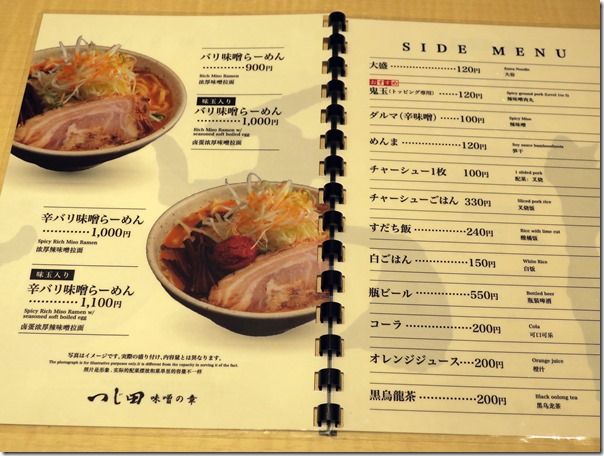 バリ味噌らーめん
………………900円
Rich Miso Ramen
浓厚辣味噌拉面
味玉入り
バリ味噌らーめん
…………1,000円
Rich Miso Ramen w/
seasoned soft boiled egg
卤蛋浓厚辣味噌拉面
辛バリ味噌らーめん
…………1,000円
Spicy Rich Miso Ramen
浓厚辣味噌拉面
味玉入り
辛バリ味噌らーめん
…………1,100円
Spicy Rich Miso Ramen w/
seasoned soft boiled egg
卤蛋浓厚辣味噌拉面
写真はイメージです。実際の盛り付け、内容量とは異なります。
The photograph is for illustrative purposes only.It is different from the capacity in serving it of the fact.
照片是形象，实际的配菜摆放和菜单里的容量不一样
つじ田 味噌の章
SIDE MENU
大盛 ……………120円 Extra Noodle
大份
鬼玉(トッピング専用)……120円 Spicy ground pork
辣味噌肉丸
ダルマ(辛味噌)……100円 Spicy Miso
辣味噌
めんま……………120円 Soy sauce bambooshoots
笋干
チャーシュー1枚 100円 1 slided pork
配菜：叉烧
チャーシューごはん 330円 Sliced pork rice
叉烧饭
すだち飯…………240円 Rice with lime cut
酸橘饭
白ごはん…………150円 White Rice
白饭
瓶ビール…………550円 Bottled beer
瓶装啤酒
コーラ……………200円 Cola
可口可乐
オレンジジュース…200円 Orange juice
橙汁
黒烏龍茶…………200円 Black oolong tea
黑乌龙茶